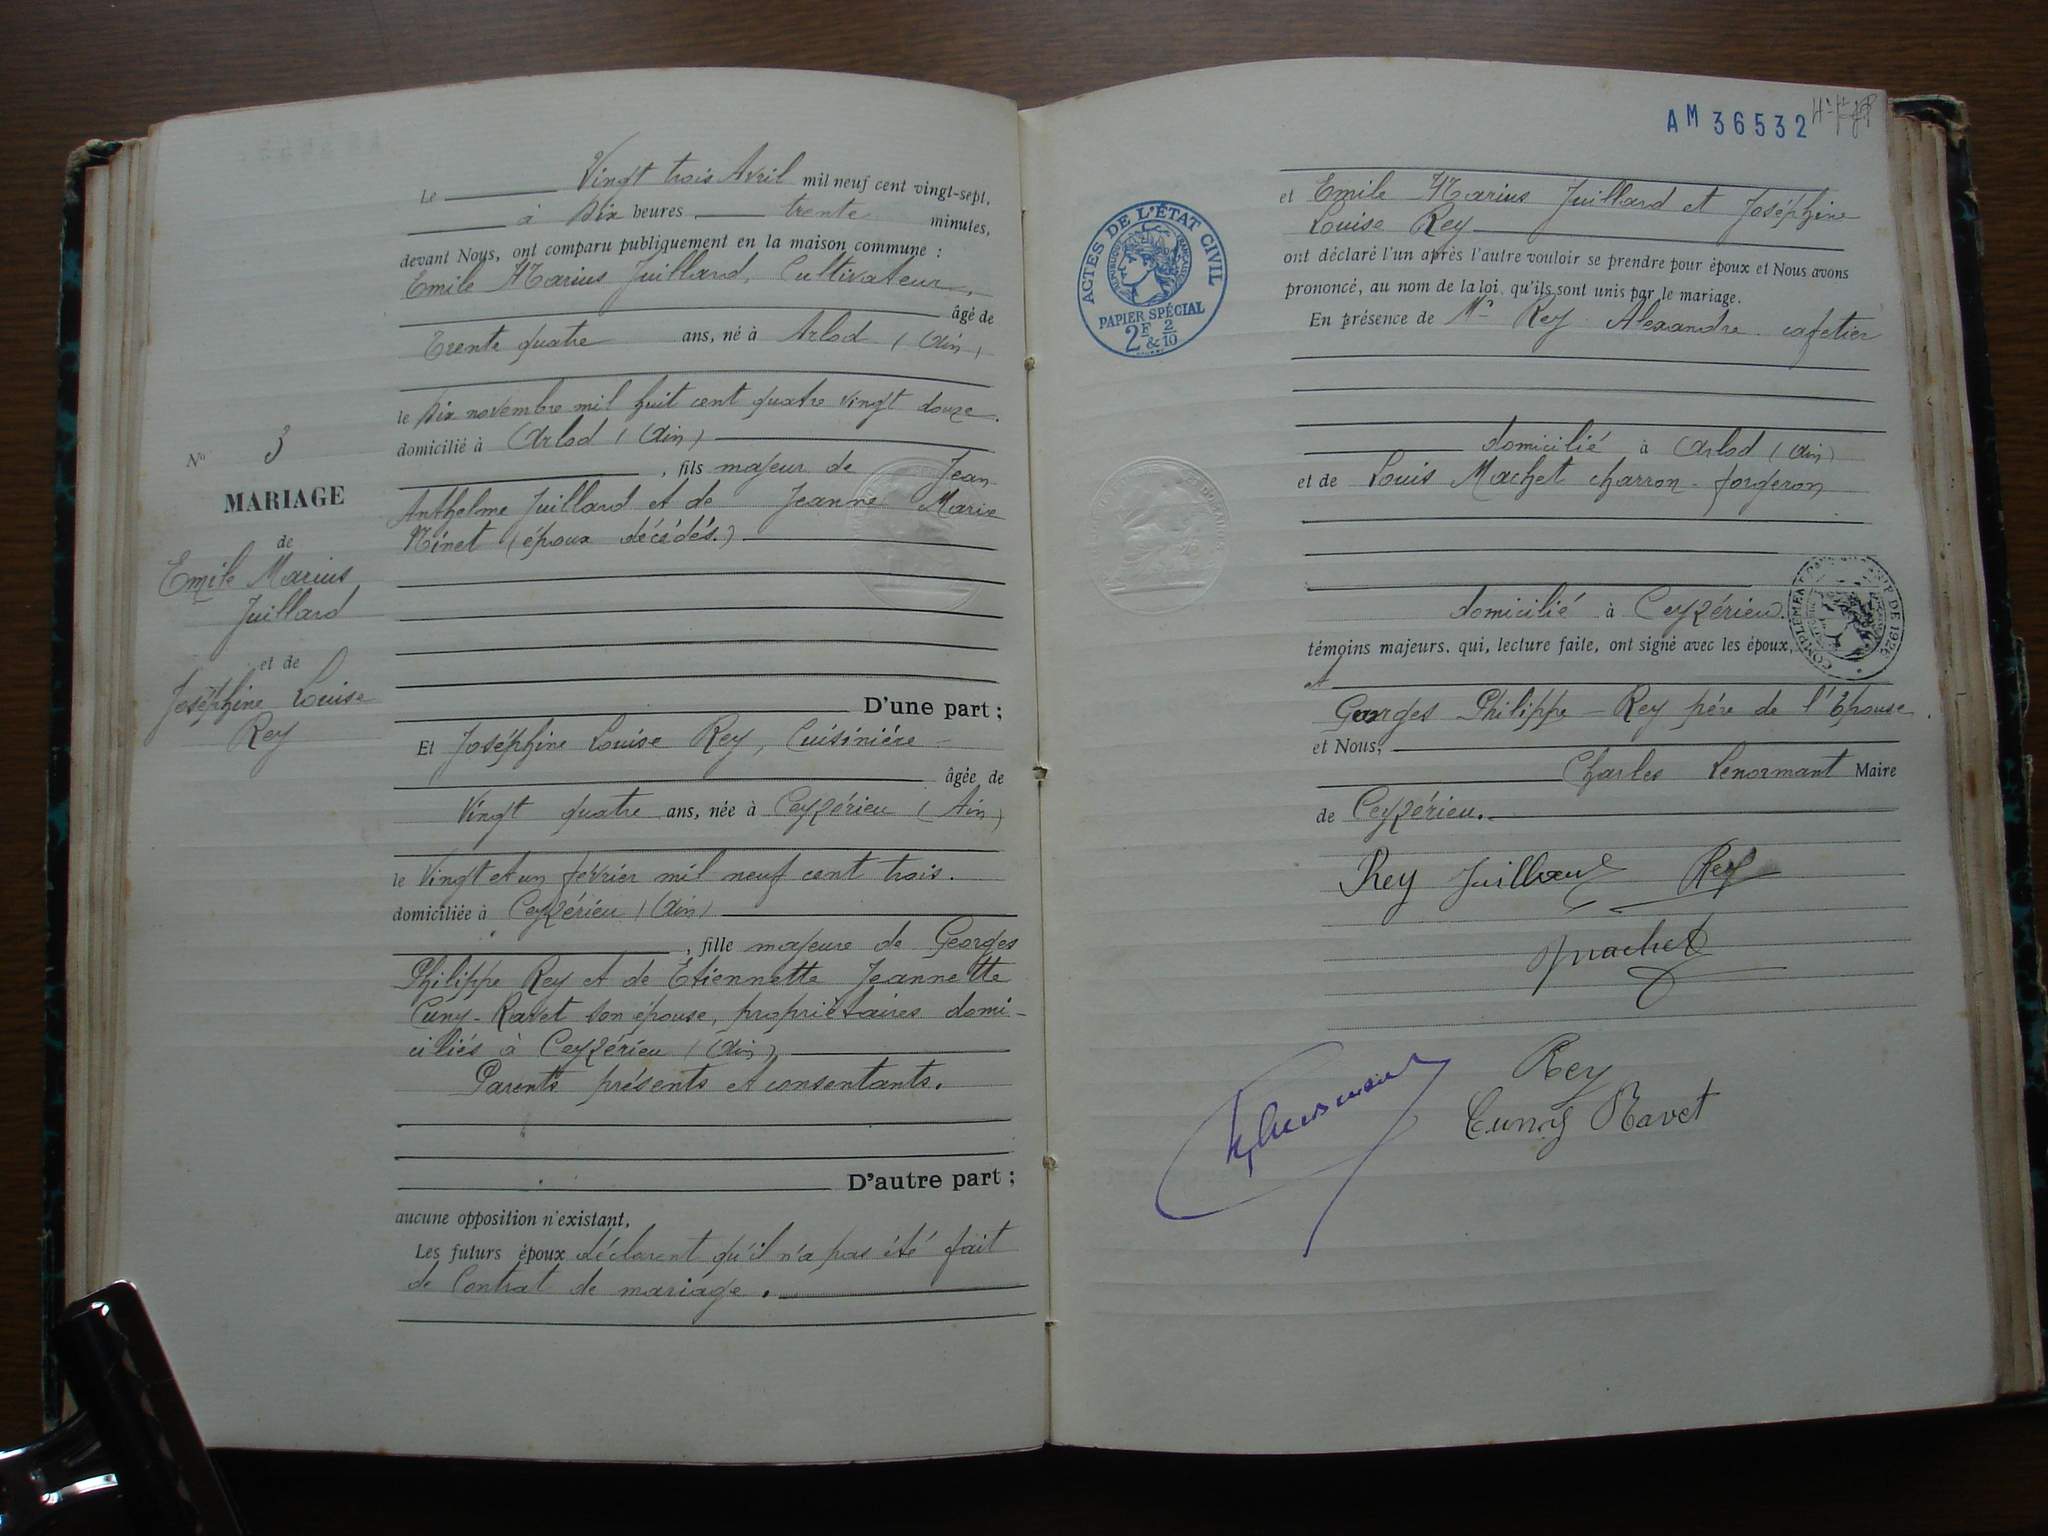 Le Vingt trois Avril mil neuf cent vingt-sept,
à Dix heures trente minutes,
devant Nous, ont comparu publiquement en la maison commune :
Emile Marius Juillard, Cultivateur,
âgé de
Trente quatre ans, né à Arlod (Ain)
le Dix novembre mil huit cent quatre vingt douze.
domicilié à Arlod (Ain)
, fils majeur de Jean
Anthelme Juillard et de Jeanne Marie
Ninet (époux décédés.)
D'une part ;
Et Joséphine Louise Rey, Cuisinière
âgée de
Vingt quatre ans, née à Ceyzérieu (Ain)
le Vingt et un février mil neuf cent trois.
domiciliée à Ceyzérieu (Ain)
, fille majeure de Georges
Philippe Rey et de Etiennette Jeannette
Cuny-Ravet son épouse, propriétaires domi-
ciliés à Ceyzérieu (Ain)
Parents présents et consentants.
D'autre part ;
aucune opposition n'existant,
Les futurs époux déclarent qu'il n'a pas été fait
de Contrat de mariage.
No 3
MARIAGE
de
Emile Marius
Juillard
et de
Joséphine Louise
Rey
AM 36532
ACTES DE L'ÉTAT CIVIL
PAPIER SPÉCIAL
2F & 2/10
et Emile Marius Juillard et Joséphine
Louise Rey
ont déclaré l'un après l'autre vouloir se prendre pour époux et Nous avons
prononcé, au nom de la loi, qu'ils sont unis par le mariage.
En présence de Mr Rey Alexandre cafetier
domicilié à Arlod (Ain)
et de Louis Machet charron-forgeron
domicilié à Ceyzérieu.
DE 1926
témoins majeurs. qui, lecture faite, ont signé avec les époux,
et
Georges Philippe Rey père de l'Epouse.
et Nous,
Charles Lenormant Maire
de Ceyzérieu.
Rey Juillard Rey
Machet
Rey
Cuny Ravet